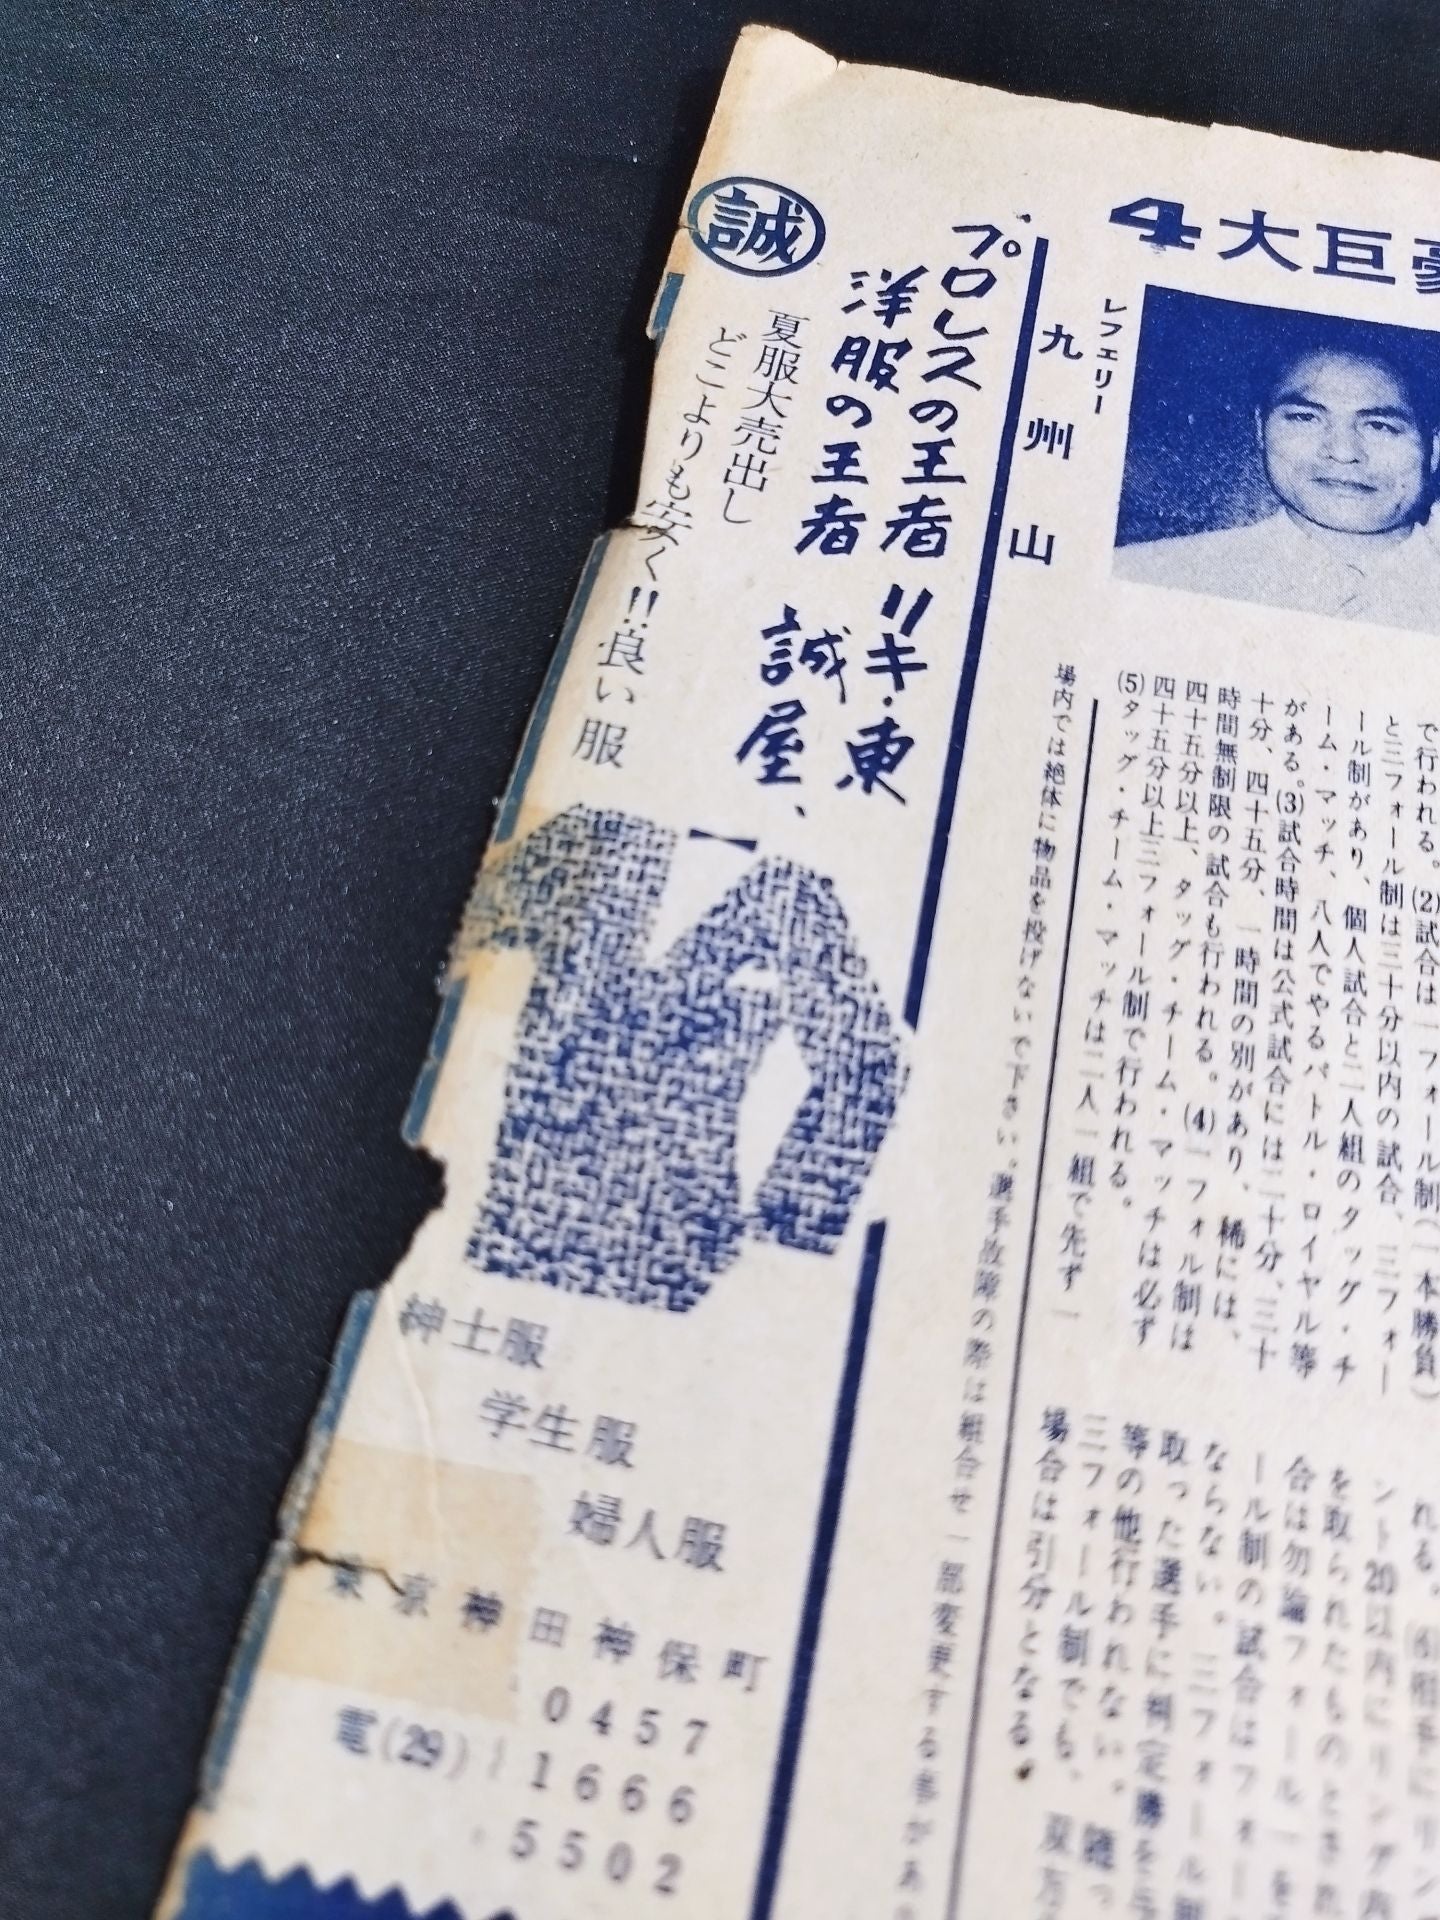 4大巨豪
レフェリー
九州山
で行われる。(2)試合は一フォール制(一本勝負)
と三フォール制は三十分以内の試合、三フォー
ール制があり、個人試合と二人組のタッグ・チ
ーム・マッチ、八人でやるバトル・ロイヤル等
がある。(3)試合時間は公式試合には二十分、三十
十分、四十五分、一時間の別があり、稀には、
時間無制限の試合も行われる。(4)一フォール制は
四十五分以上、タッグ・チーム・マッチは必ず
四十五分以上三フォール制で行われる。
(5)タッグ・チーム・マッチは二人一組で先ず一
れる。(6)相手にリン
ント20以内にリング内
を取られたものとされ
合は勿論フォール一を
ール制の試合はフォー
ならない。三フォール
取った選手に判定勝を
等の他行われない。
三フォール制でも、双方
場合は引分となる。
場内では絶体に物品を投げないで下さい。選手故障の際は組合せ一部変更する事があ
プロレスの王者 リキ・東
洋服の王者 誠屋、
夏服大売出し
どこよりも安く!!良い服
誠
紳士服
学生服
婦人服
東京神田神保町
電(29)
0457
1666
5502